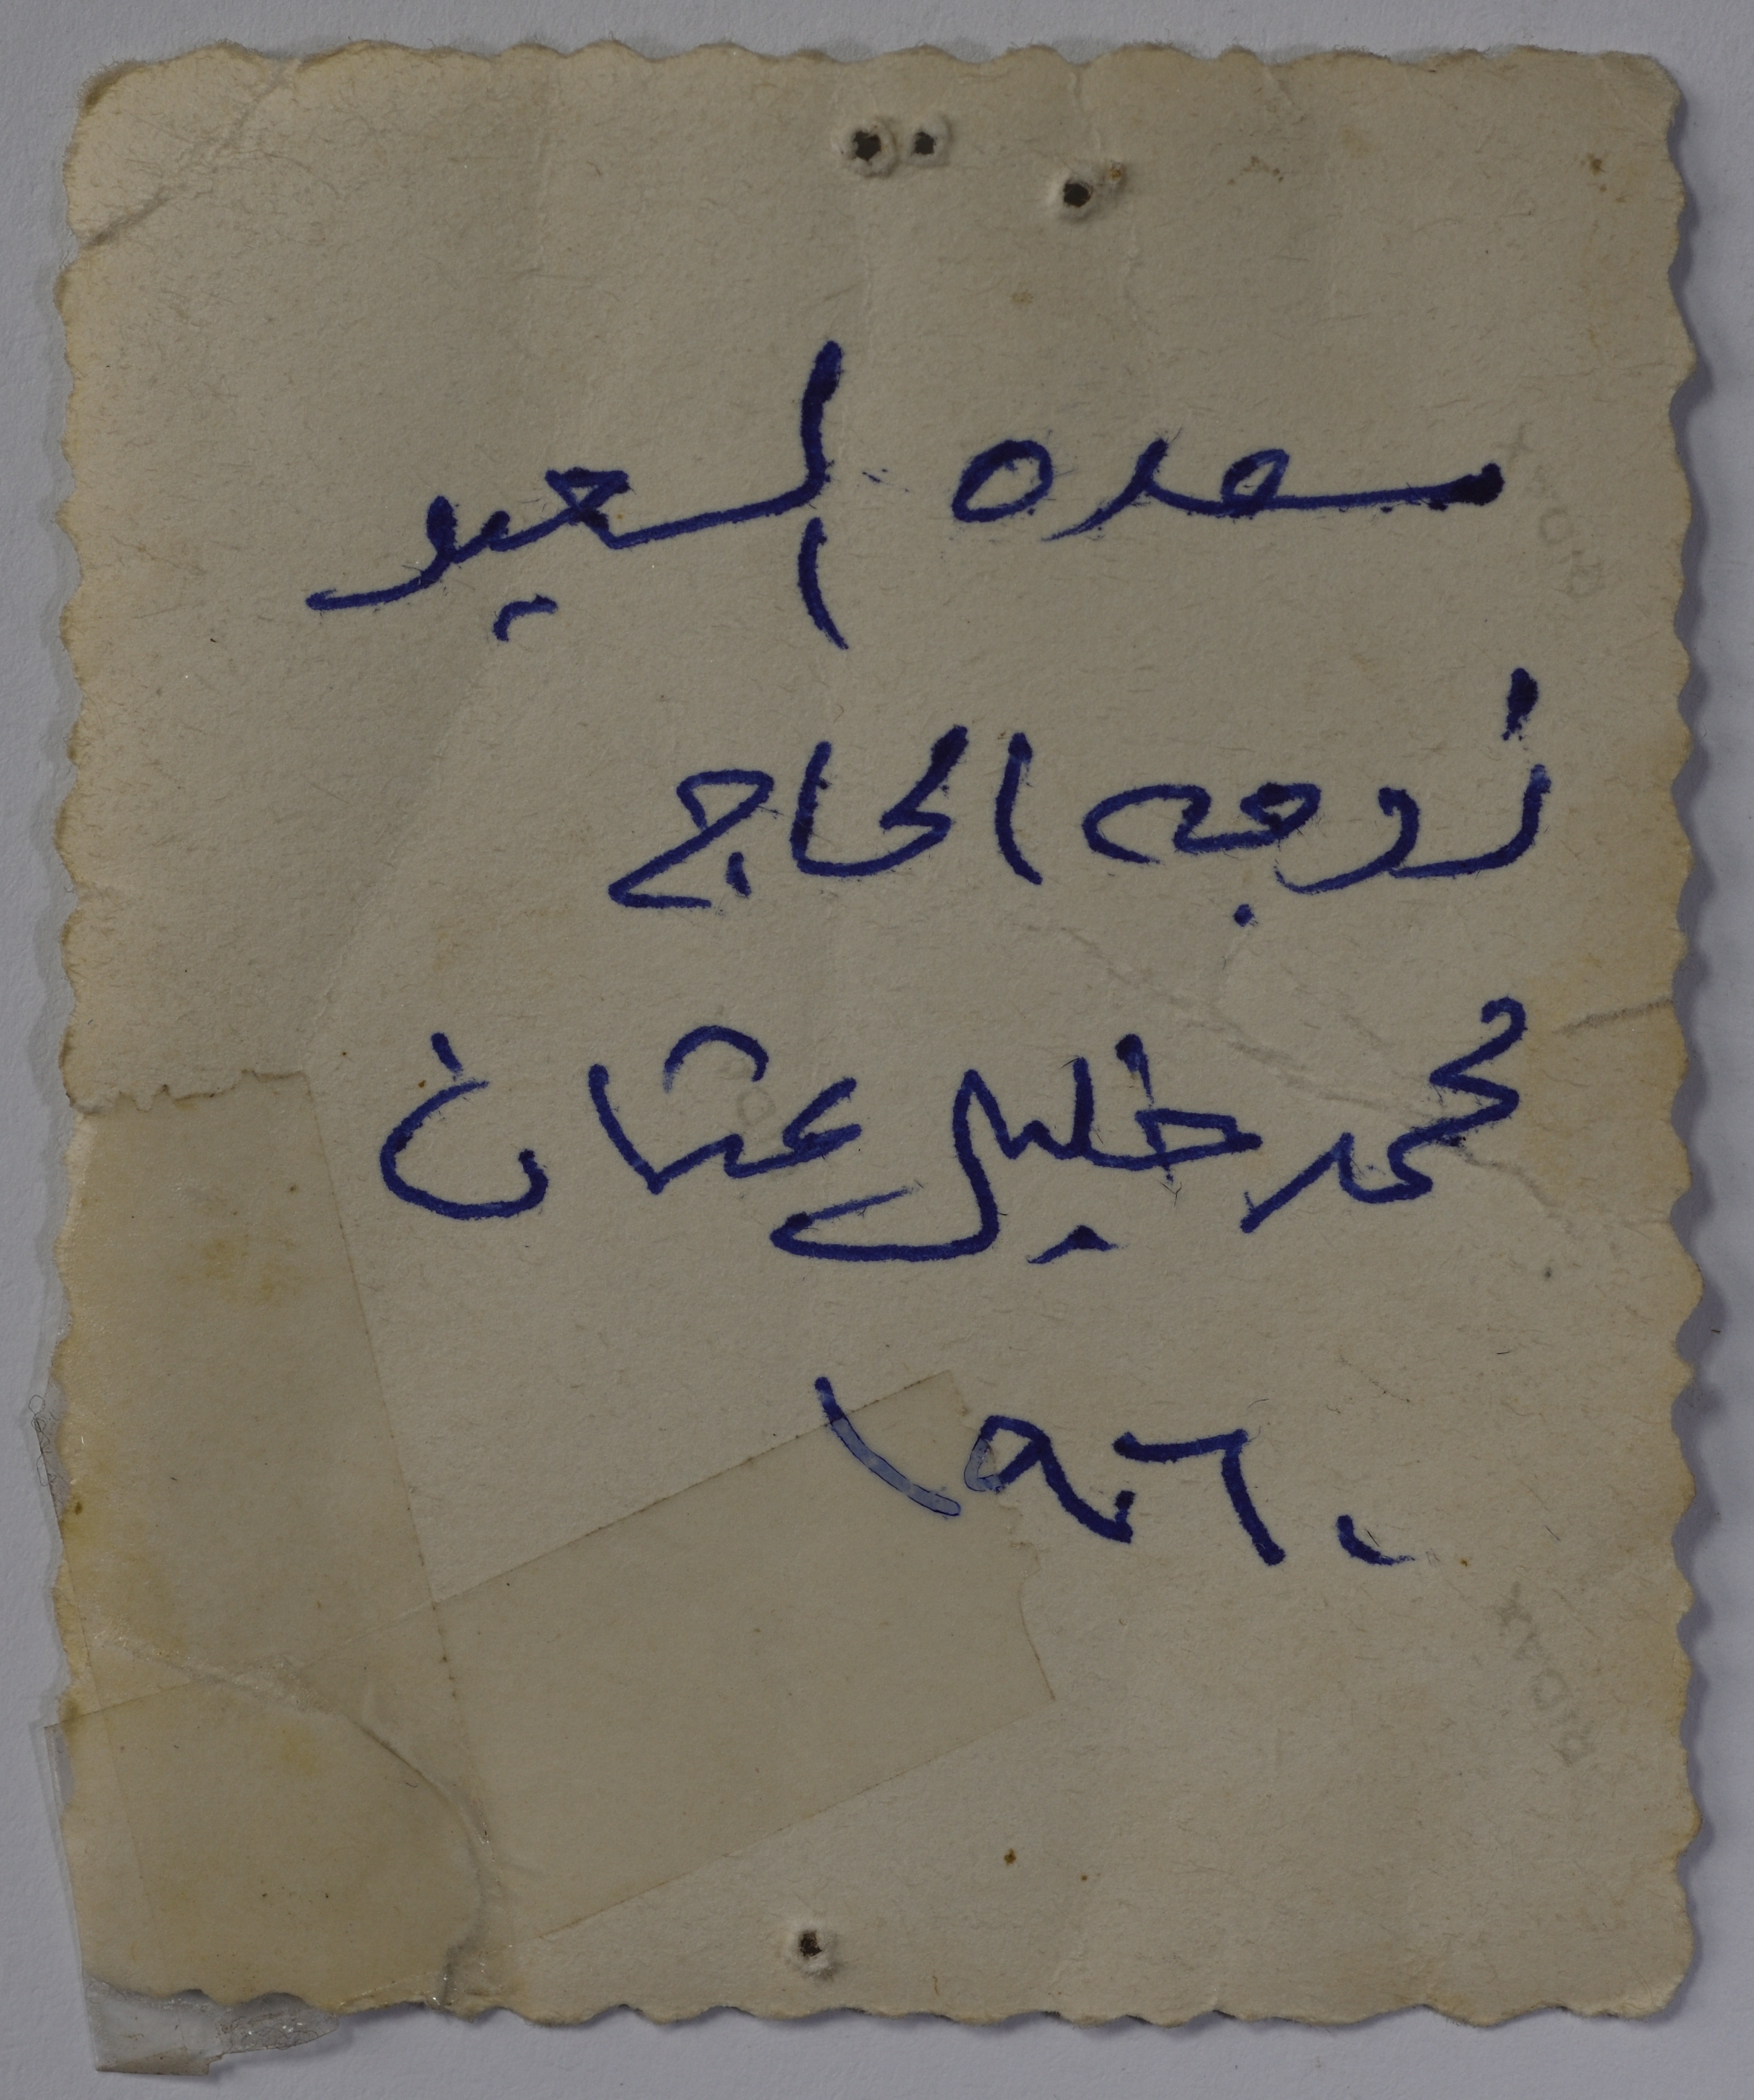 سعده السعيد
زوجه الحاج
محمد خليل عثمان
١٩٦٠